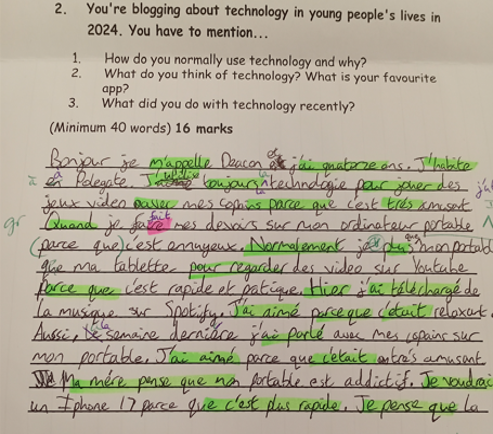 2. You're blogging about technology in young people's lives in
2024. You have to mention...
1. How do you normally use technology and why?
2. What do you think of technology? What is your favourite
app?
3. What did you do with technology recently?
(Minimum 40 words) 16 marks
Bonjour je m'appelle Deacon et j'ai quatorze ans. J'habite
à Polegate. J'utilise toujours la technologie pour jouer des
jeux video avec mes copins parce que c'est trés amusant
gr Quand je fait mes devoirs sur mon ordinateur portable
(parce que) c'est annuyeux. Normalement je plus mon portabl
que ma tablette pour regarder des video sur Youtube
parce que c'est rapide et patique. Hier j'ai téléchargé de
la musique sur Spotify. J'ai aimé parceque c'etait relaxant.
Aussi, la semaine dernière j'ai parlé avec mes copains sur
mon portable. J'ai aimé parce que c'etait trés amusant
Ma mére pense que mon portable est addictif. Je voudrai
un Iphone 17 parce que c'est plus rapide. Je pense que la